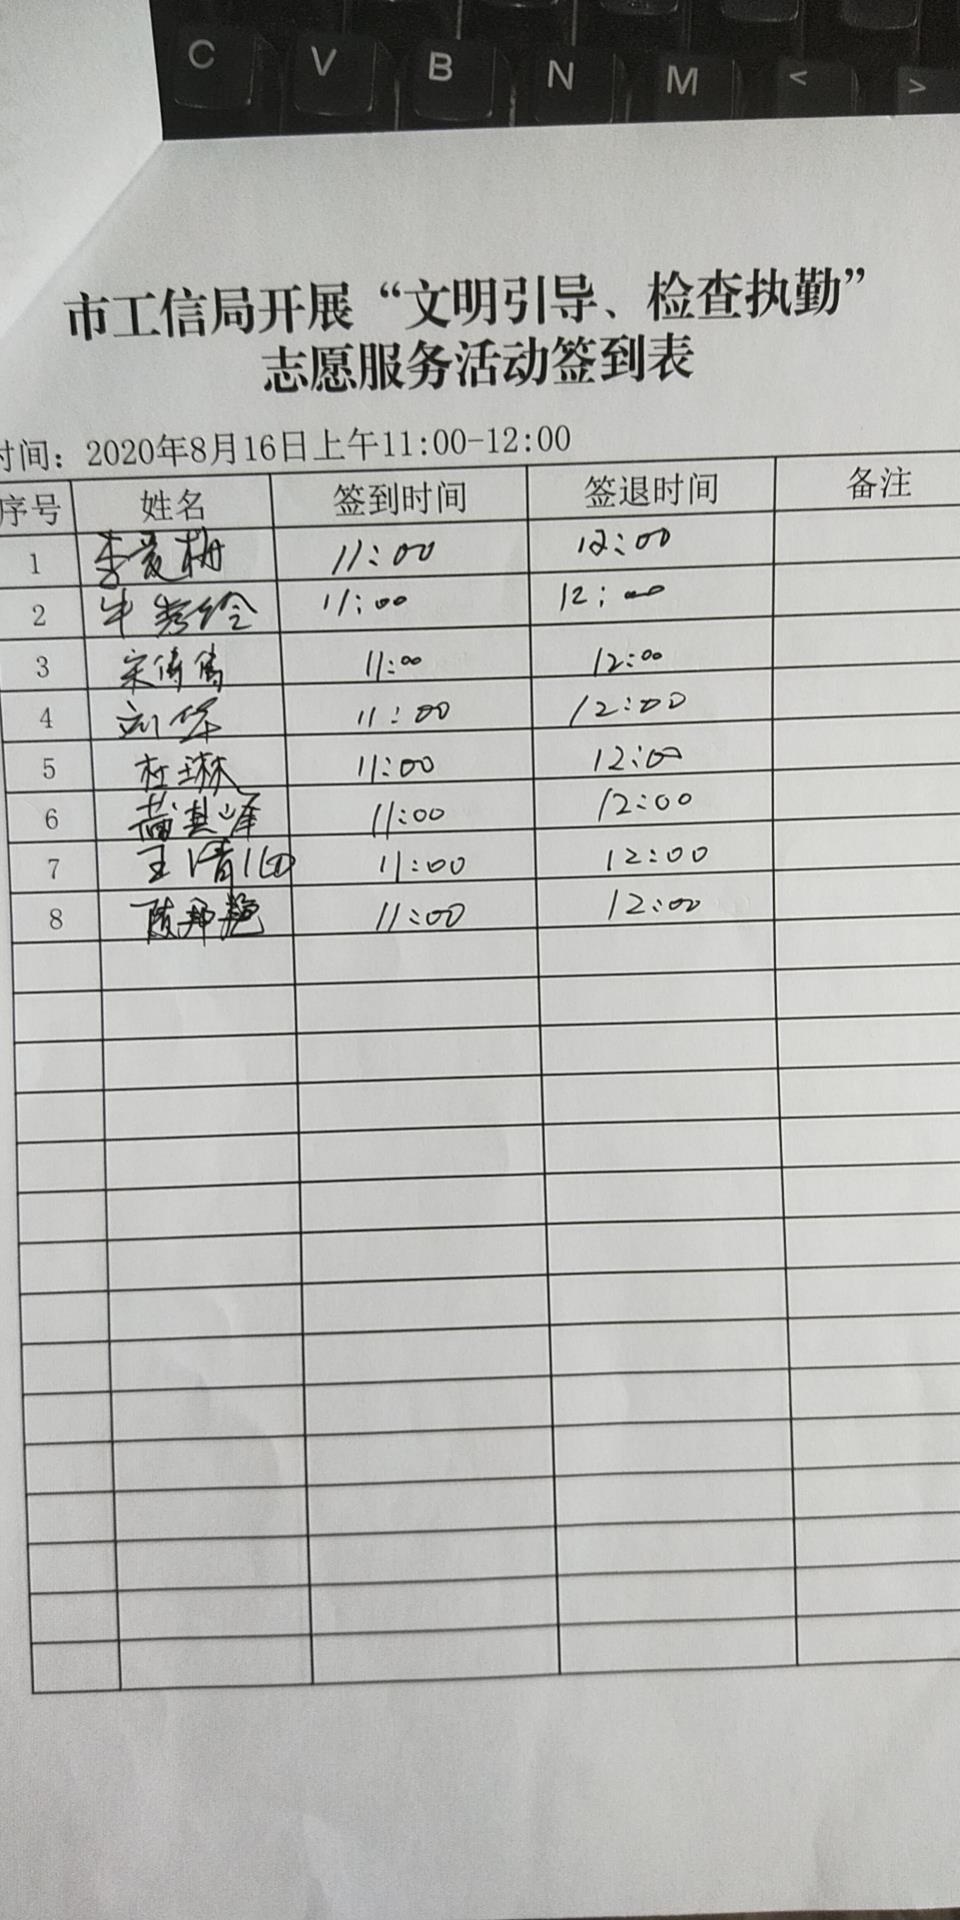 C V B N M < >
市工信局开展“文明引导、检查执勤”
志愿服务活动签到表
时间：2020年8月16日上午11:00-12:00
序号 姓名 签到时间 签退时间 备注
1 李爱梅 11:00 12:00
2 牛秀玲 11:00 12:00
3 宋倩倩 11:00 12:00
4 刘华 11:00 12:00
5 杜琳 11:00 12:00
6 黄其峰 11:00 12:00
7 王清 11:00 12:00
8 陈邦艳 11:00 12:00